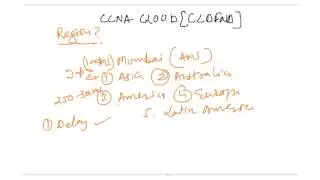 CCNA CLOUD [CLDFND]
Region?
Mumbai (AWS)
① Asia ② Australia
③ America ④ Europe
250-300
① Delay ✓ 5. Latin America